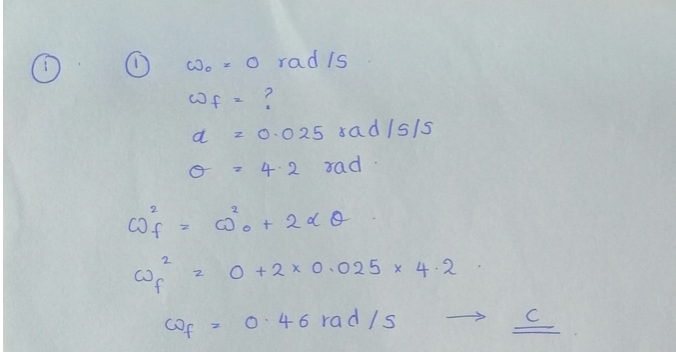 ① ① ω₀ = 0 rad/s
ωf = ?
α = 0.025 rad/s/s
θ = 4.2 rad.
ωf² = ω₀² + 2αθ.
ωf² = 0 + 2 × 0.025 × 4.2.
ωf = 0.46 rad/s → C.